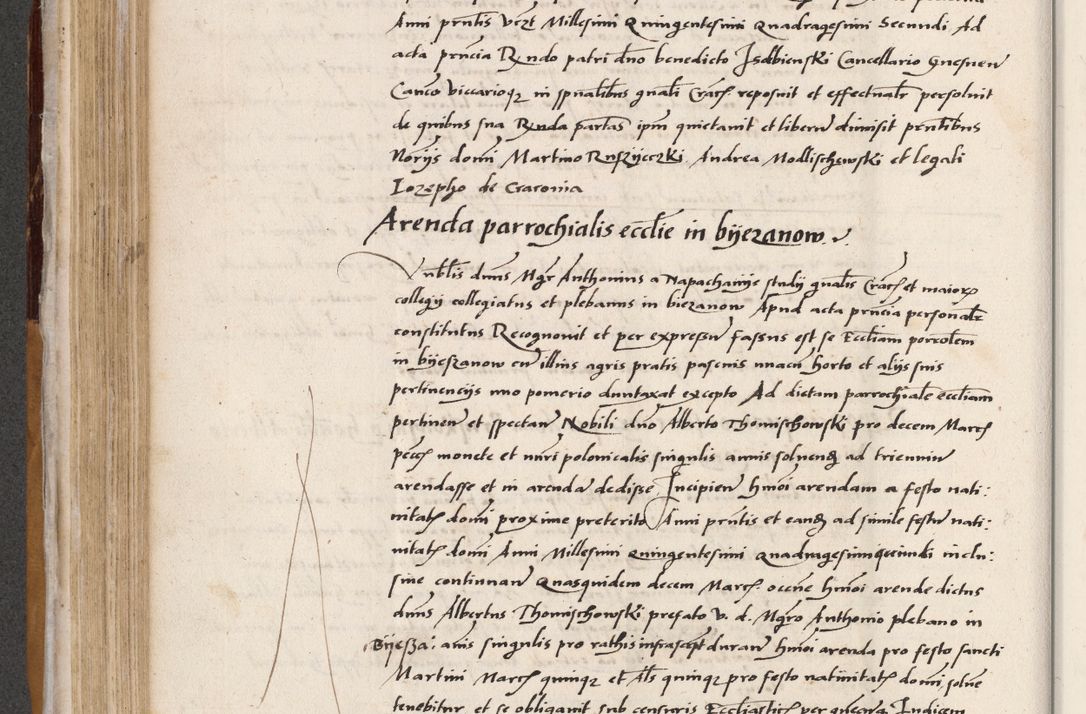 Anni prntis vert Millesimi Quingentesimi Quadragesimi Secundi Ad
acta prncia Rndo patri dno benedicto Isdbienski Cancellario Gnesnen
Canco viccarioqz in spualibus gnali Crac reposuit et effectualr persoluit
de quibus sua Rnda partas ipm quietauit et liberu dimisit prntibus
Norijs domi Martino Ruszijeczki Andrea Modlischewski et legali
Iozepho de Cracouia
Arenda parrochialis ecclie in bijezanow
Vnblis dnus Mgr Anthonius a Napachanije studij gnalis Crac et maiorz
collegij collegiatus et plebanus in biezanow Apud acta prncia personalr
constitutus Recognouit et per expressu fassus est se Eccliam porcolem
in bijeszanow cu illius agris pratis pascuis unacu horto et alijs suis
pertinencijs uno pomerio duntaxat excepto Ad dictam parrochiale eccliam
pertinen et spectan Nobili dno Alberto Thomischowski pro decem Marc
pecc monete et nuri polonicalis singulis annis soluend ad trienniu
arendasse et in arenda dedisse Incipien hmoi arendam a festo nati:
uitatis domi proxime preterito Anni prntis et eand ad simile festu nati:
uitatis domi Anni Millesimi quingentesimi quadragesimi secundi inclu:
siue continuan Quasquidem decem Marc occne hmoi arende dictus
dnus Albertus Thomischowski prefato v. d. Mgro Anthonio plebano in
Bijesza: anis singulis pro rathis infrascpt duran hmoi arenda pro festo sancti
Martini Marc quinqz et als quinqz pro festo natiuitatis domi, solue
tenebitur et se obligauit sub censuris Ecclasticis per quemcunqz Iudicem